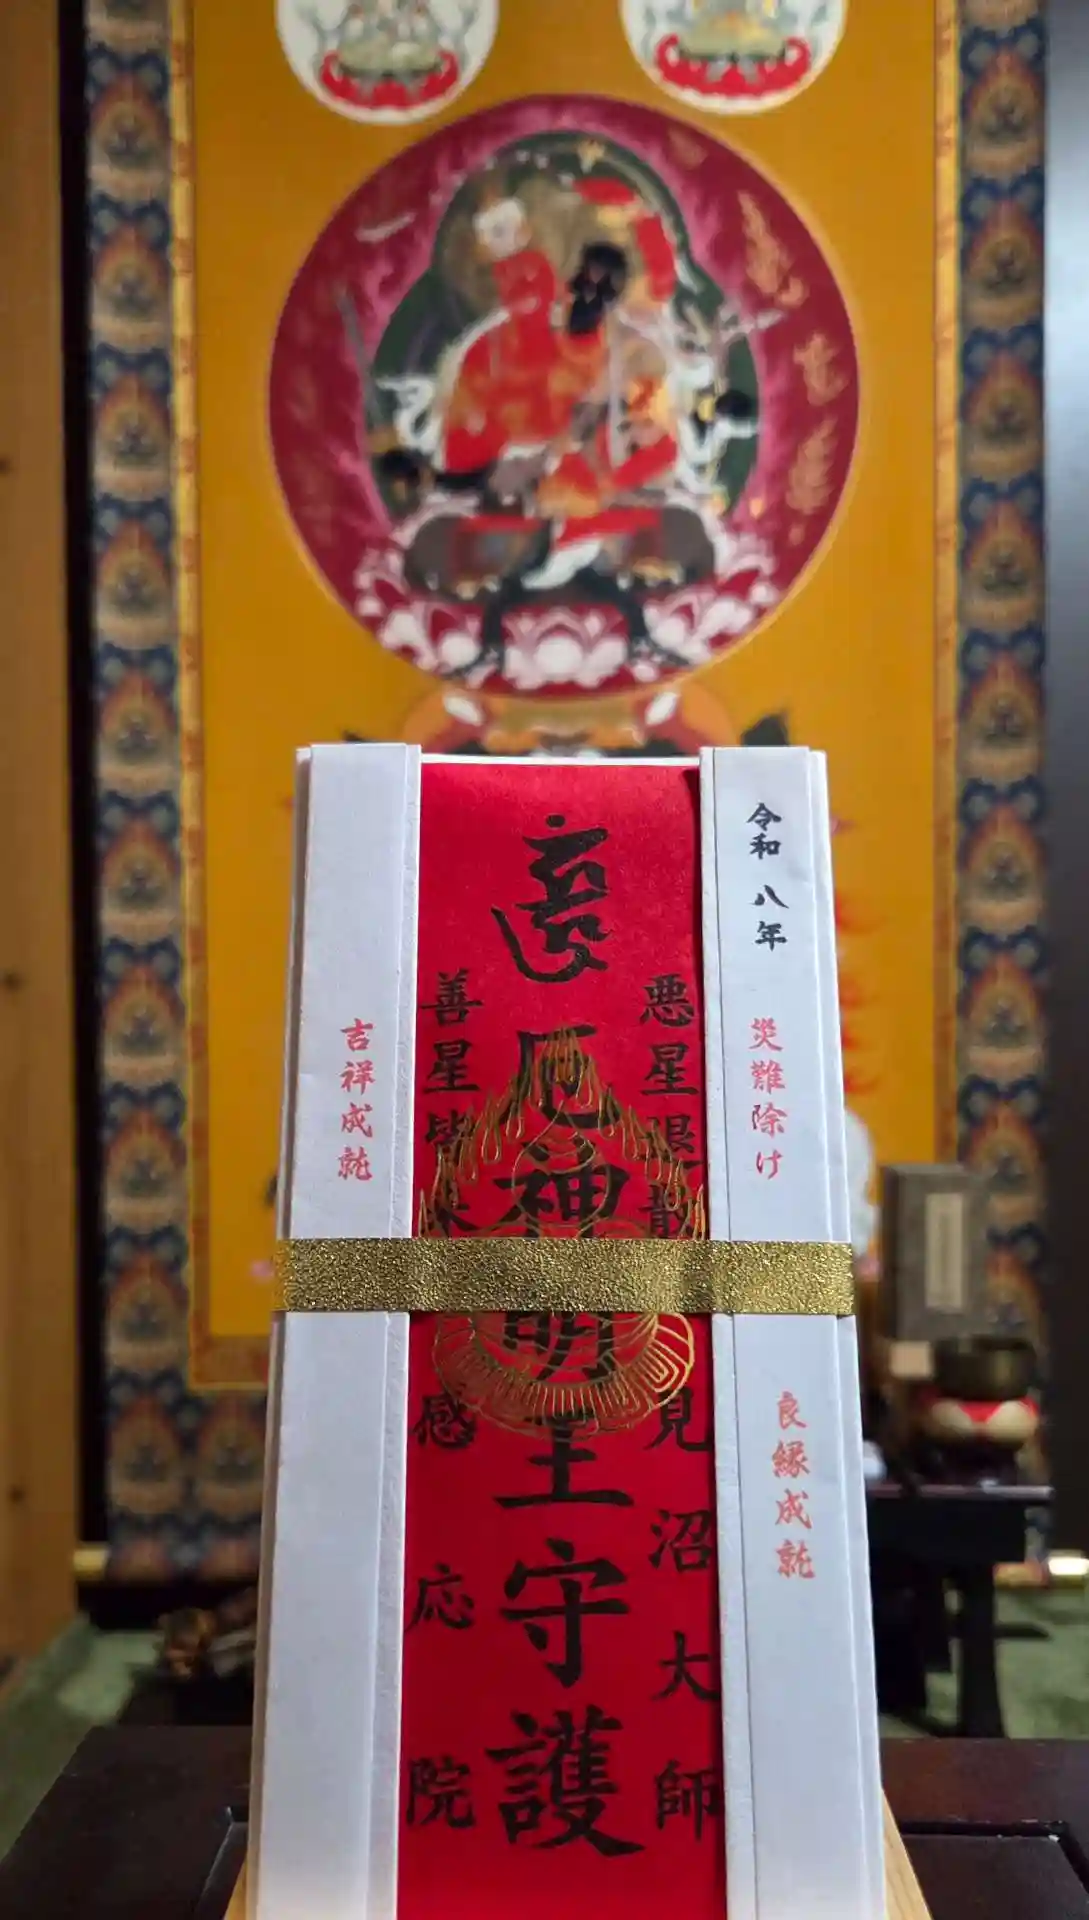 令和 八年
災難除け
良縁成就
悪星退散
見沼大師
厄神明王守護
善星皆来
感応院
吉祥成就